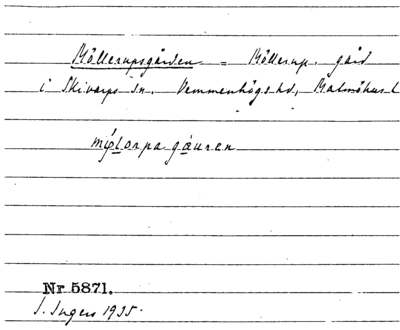 Möllerupsgården = Möllerup. gård
i Skivarps sn. Vemmenhögs hd, Malmöhus l
Nr 5871.
I. Ingers 1935.